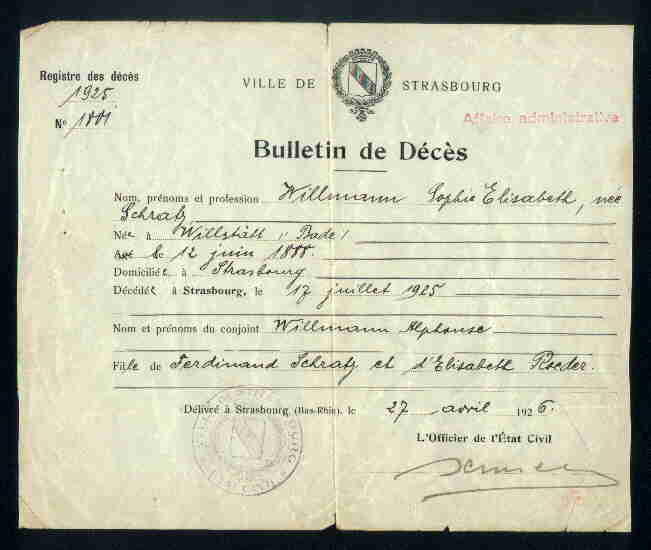 Registre des décès
1925
N° 1881
VILLE DE STRASBOURG
Affaire administrative
Bulletin de Décès
Nom, prénoms et profession Willmann Sophie Elisabeth, née
Schratz
Née à Willstätt (Bade)
le 12 juin 1888.
Domiciliée à Strasbourg
Décédée à Strasbourg, le 17 juillet 1925
Nom et prénoms du conjoint Willmann Alphonse
Fille de Ferdinand Schratz et d'Elisabeth Roeder.
Délivré à Strasbourg (Bas-Rhin), le 27 avril 1926.
L'Officier de l'État Civil